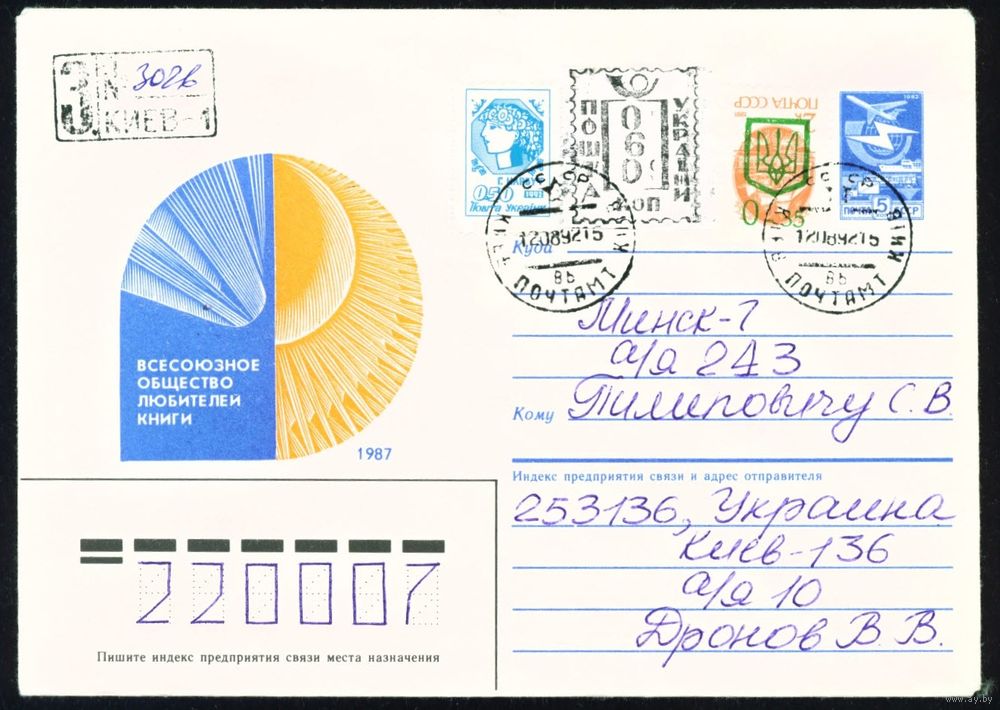 З № 302в
КИЕВ-1
0.50
1992
Пошта України
ПОШТА
060
КОП
УКРАЇНИ
1991
ПОЧТА СССР
0.35
1982
ПОЧТА 5К СССР
СССР
КИЇВ
12089215
8Б
ПОЧТАМТ КИЇВ
СССР
КИЇВ
12089215
8Б
ПОЧТАМТ КИЇВ
ВСЕСОЮЗНОЕ
ОБЩЕСТВО
ЛЮБИТЕЛЕЙ
КНИГИ
1987
Куда
Минск-7
а/я 243
Кому Тилиповичу С.В.
Индекс предприятия связи и адрес отправителя
253136, Украина
Киев-136
а/я 10
Дронов В.В.
220007
Пишите индекс предприятия связи места назначения
www.ay.by